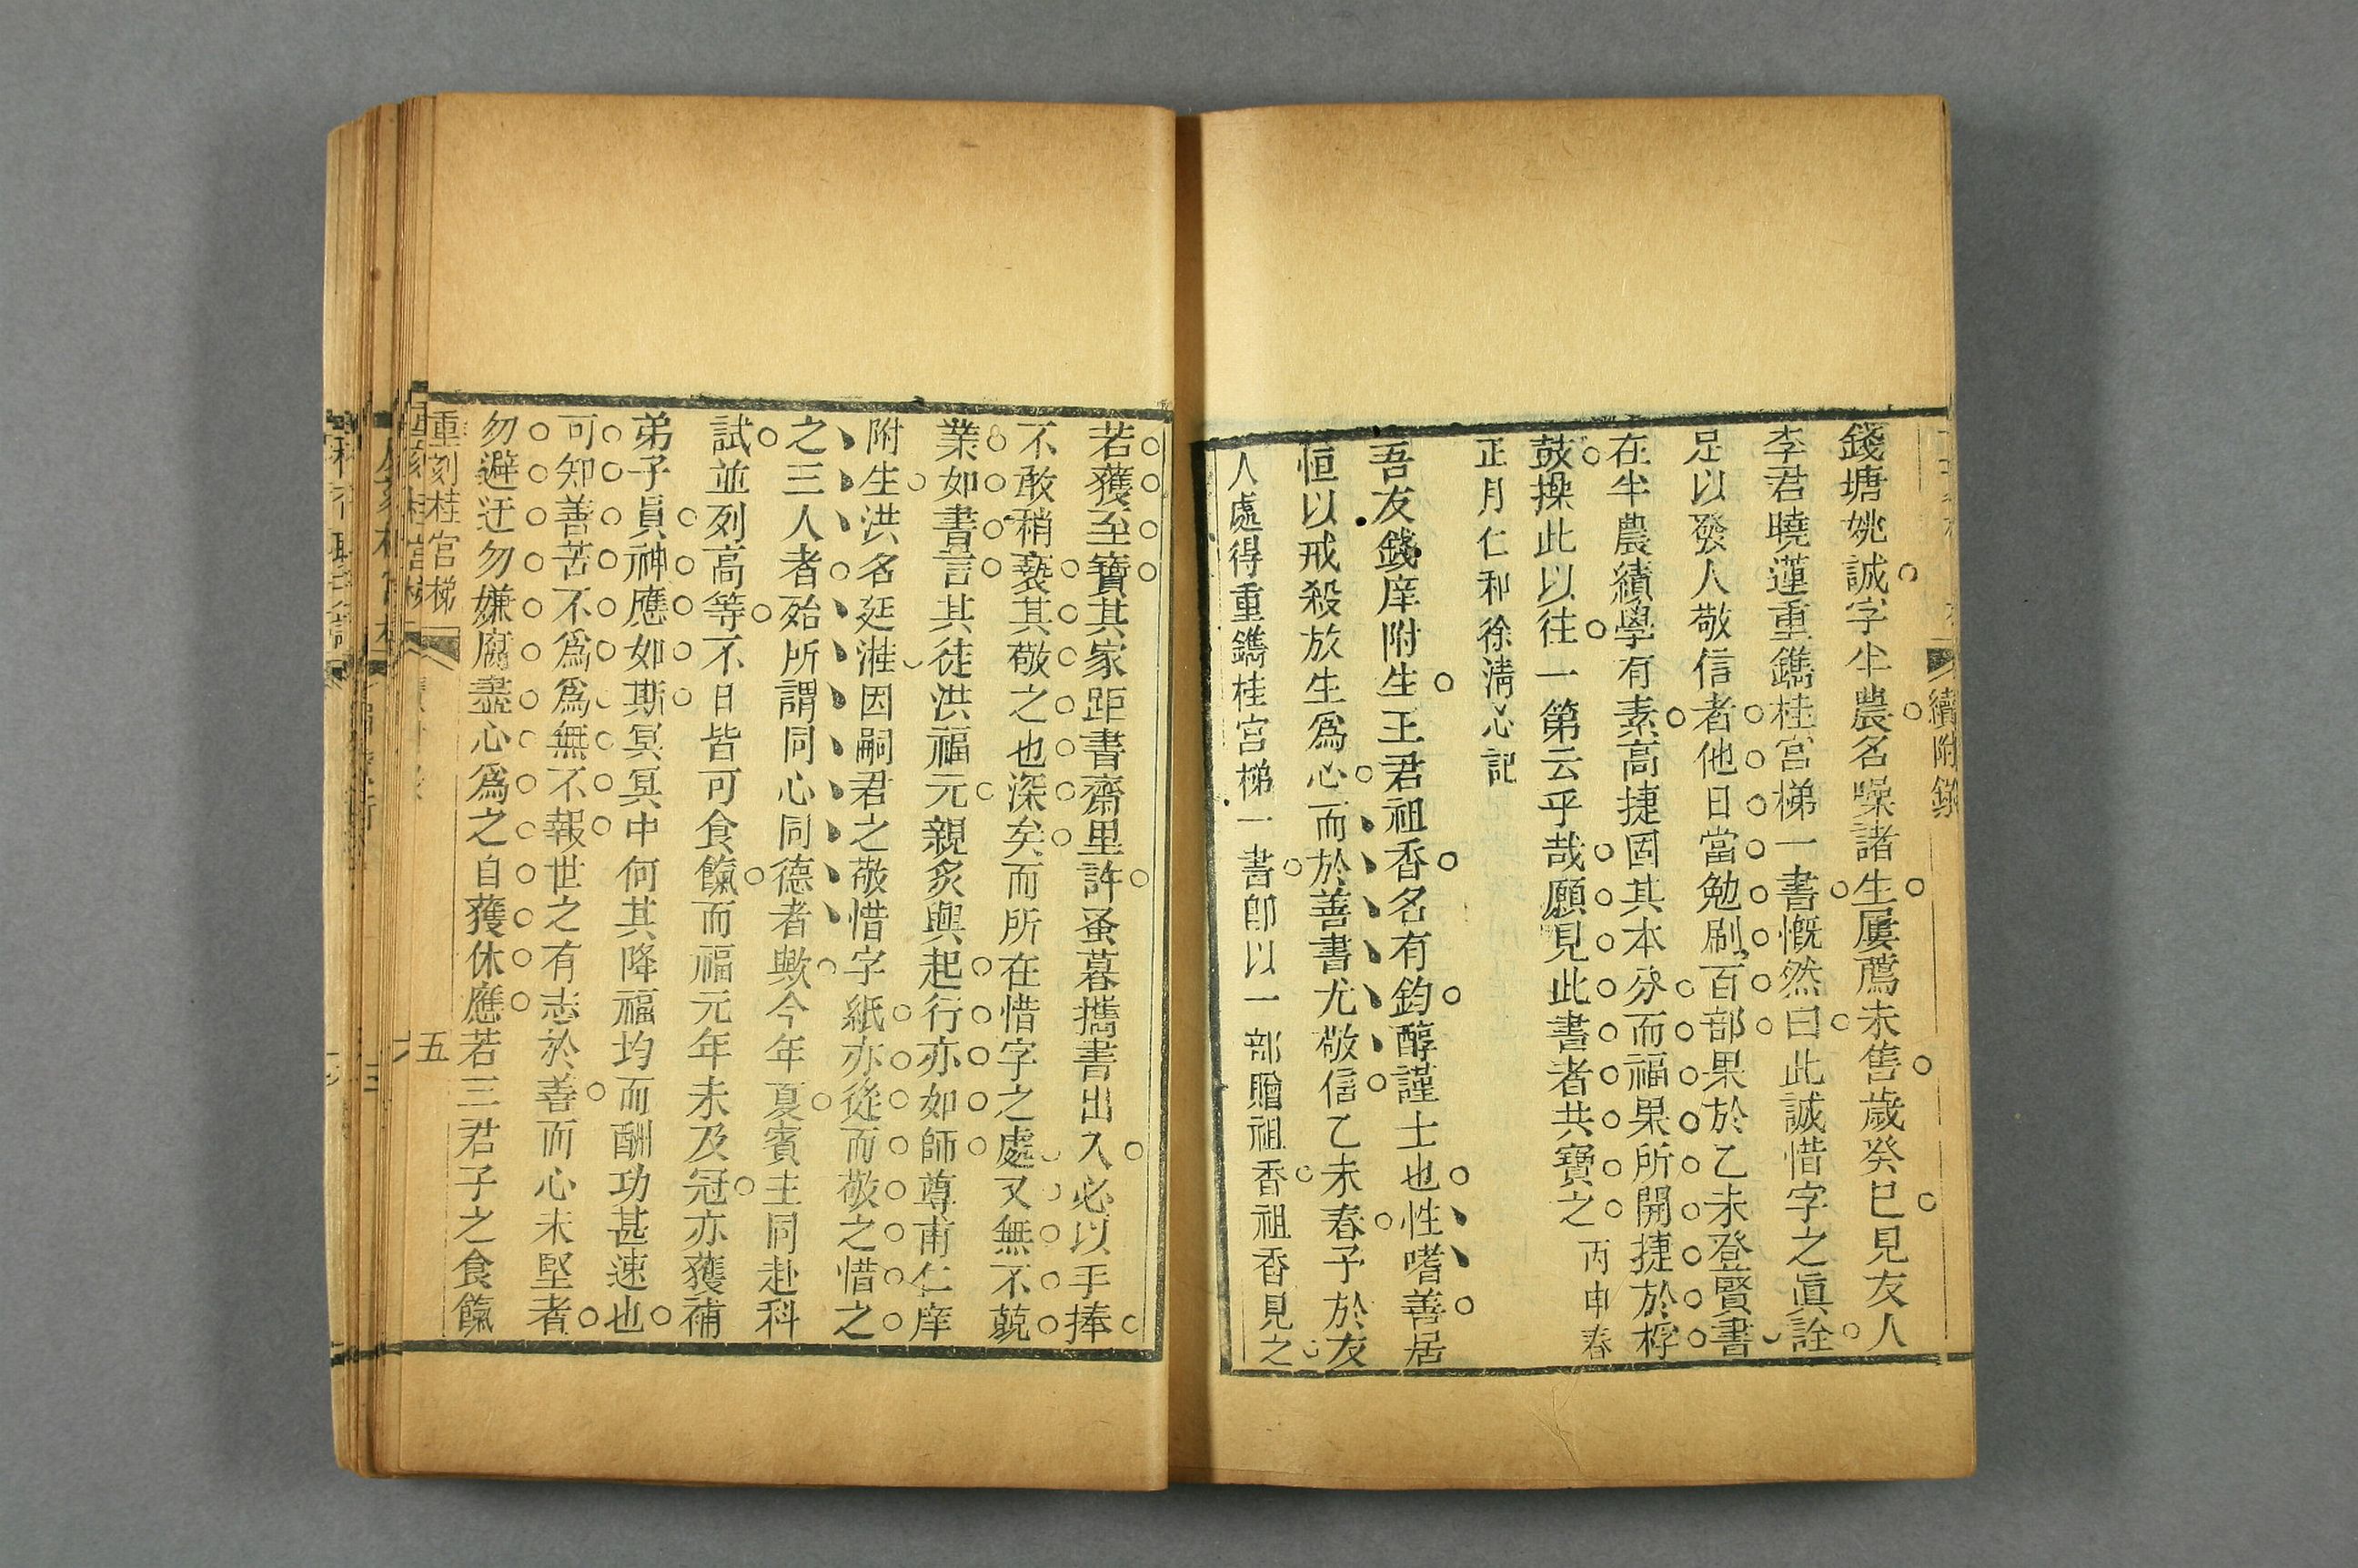 續附錄
錢塘姚誠字半農名噪諸生屢薦未售歲癸巳見友人
李君曉蓮重鐫桂宮梯一書慨然曰此誠惜字之眞詮
足以發人敬信者他日當勉刷百部果於乙未登賢書
在半農績學有素高捷固其本分而福果所開捷於桴
鼓操此以往一第云乎哉願見此書者共寶之丙申春
正月仁和徐淸沁記
吾友錢庠附生王君祖香名有鈞醇謹士也性嗜善居
恒以戒殺放生爲心而於善書尤敬信乙未春予於友
人處得重鐫桂宮梯一書卽以一部贈祖香祖香見之
若獲至寶其家距書齋里許蚤暮攜書出入必以手捧
不敢稍褻其敬之也深矣而所在惜字之處又無不兢
業如書言其徒洪福元親炙興起行亦如師尊甫仁庠
附生洪名延漼因嗣君之敬惜字紙亦從而敬之惜之
之三人者殆所謂同心同德者歟今年夏賓主同赴科
試並列高等不日皆可食餼而福元年未及冠亦獲補
弟子員神應如斯冥冥中何其降福均而酬功甚速也
可知善苦不爲爲無不報世之有志於善而心未堅者
勿避迂勿嫌腐盡心爲之自獲休應若三君子之食餼
重刻桂宮梯
五